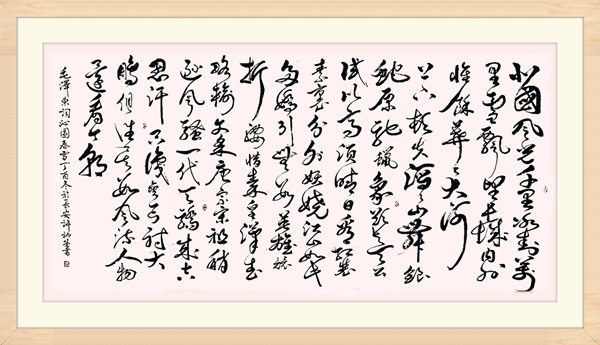 北國風光千里冰封萬
里雪飄望長城內外
惟餘莽莽大河
上下頓失滔滔山舞銀
蛇原馳蠟象欲與天公
試比高須晴日看紅裝
素裹分外妖嬈江山如此
多嬌引無數英雄競
折腰惜秦皇漢武
略輸文采唐宗宋祖稍
遜風騷一代天驕成吉
思汗只識彎弓射大
鵰俱往矣數風流人物
還看今朝
毛澤東詞沁園春雪丁酉冬於長安許書